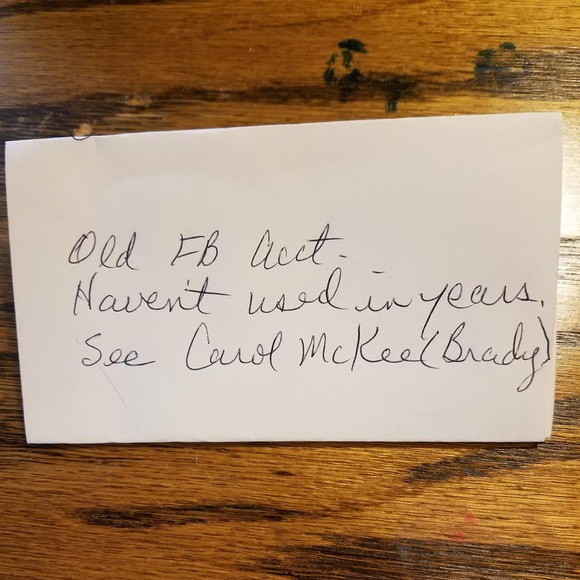 Old FB Acct.
Haven't used in years.
See Carol McKee(Brady)